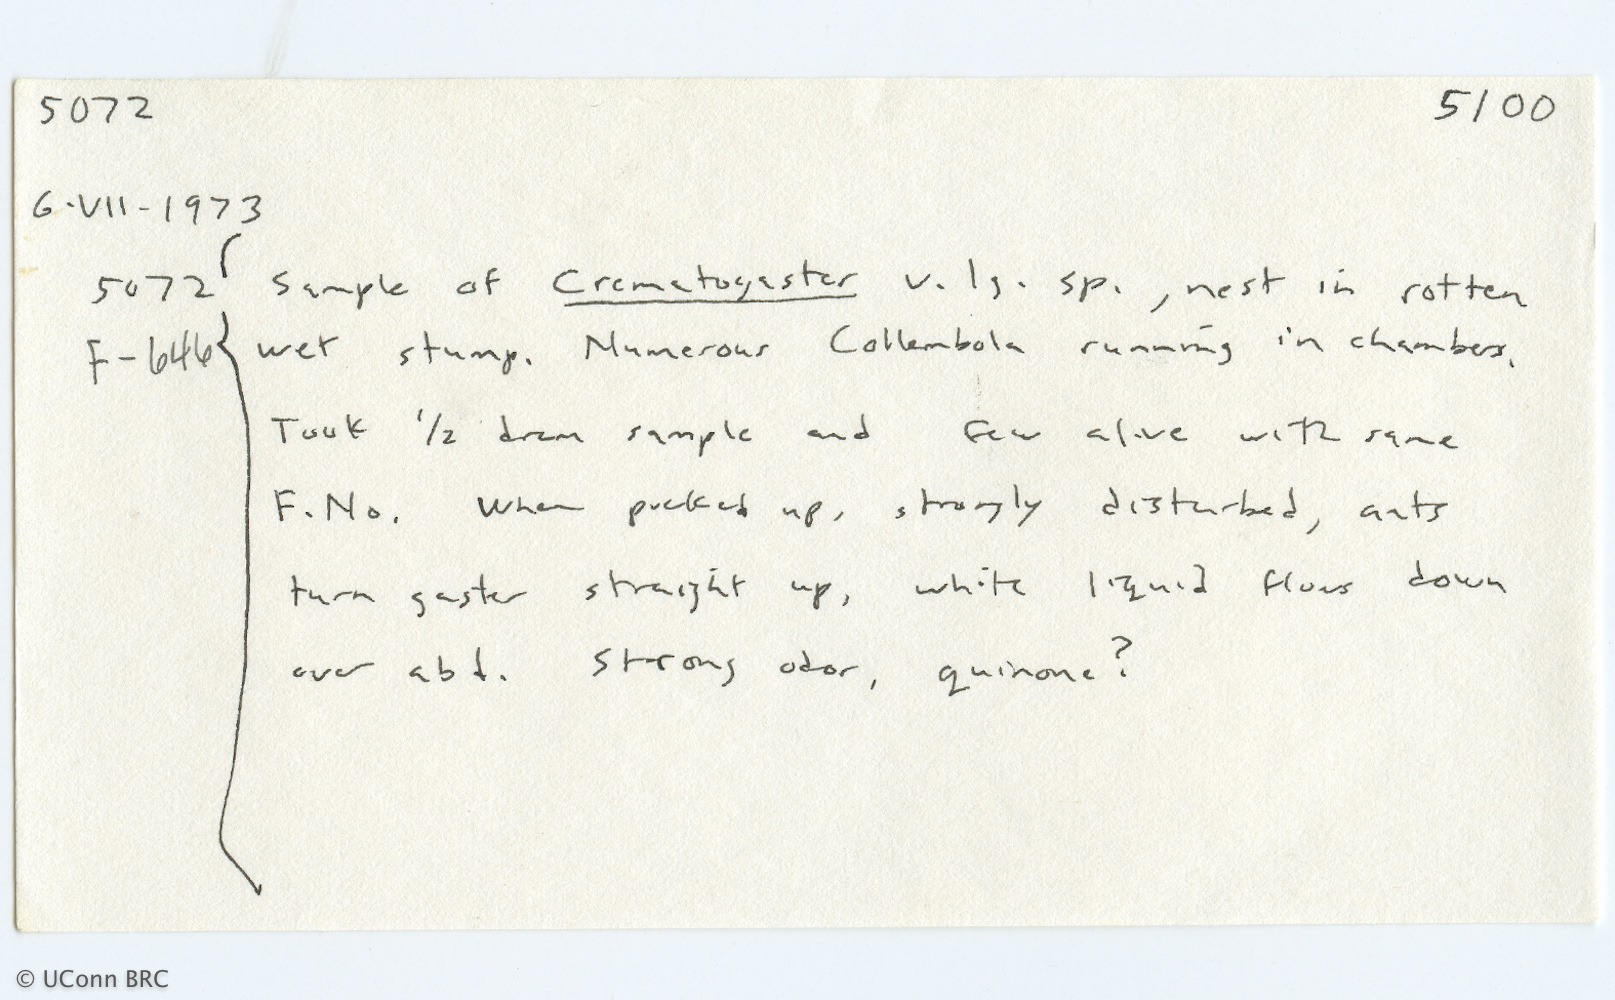 5072 5100
6·VII-1973
5072 Sample of Crematogaster v. lg. sp., nest in rotten
F-646 wet stump. Numerous Collembola running in chambers.
Took 1/2 dram sample and few alive with same
F. No. When picked up, strongly disturbed, ants
turn gaster straight up, white liquid flows down
over abd. Strong odor, quinone?
© UConn BRC